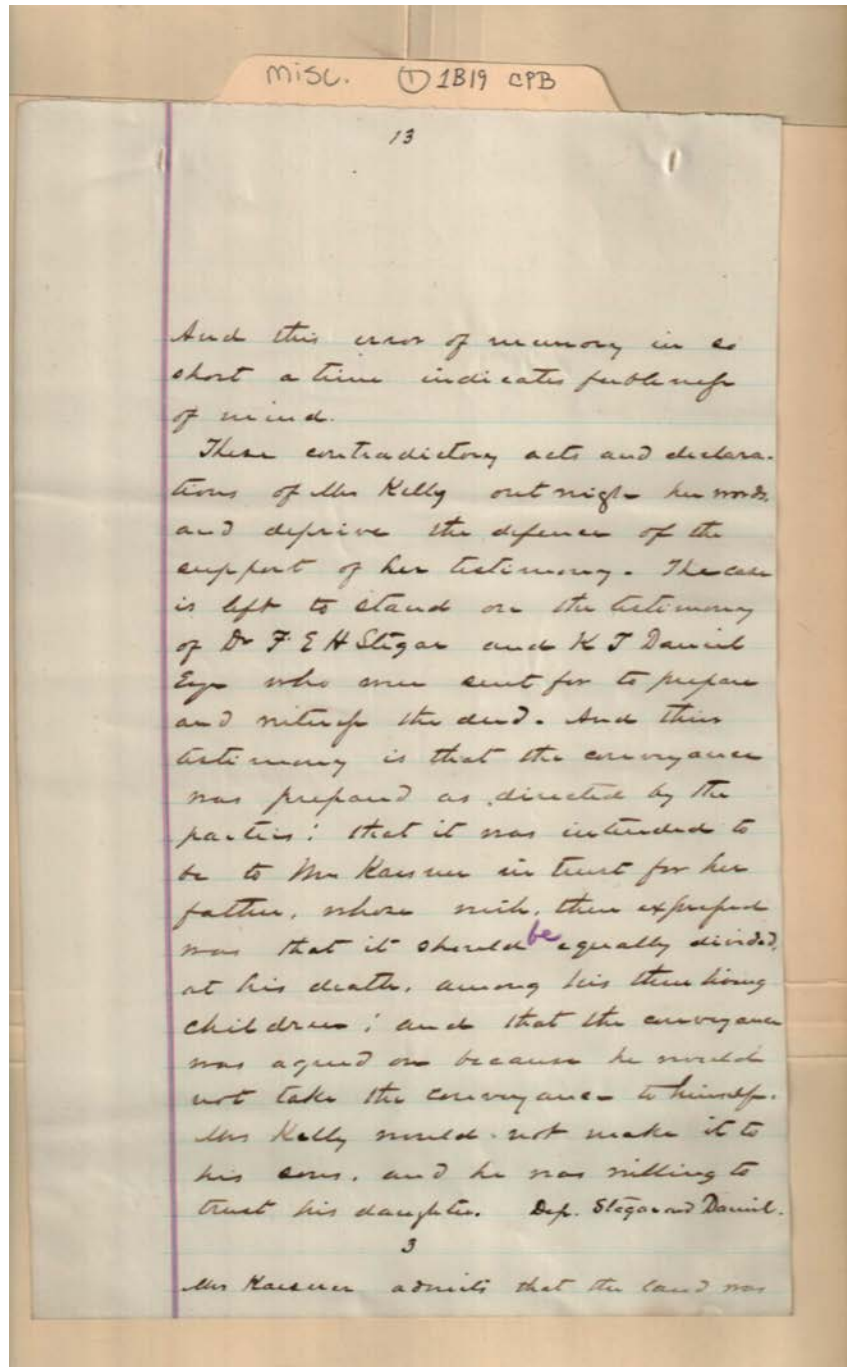 Misc. ① 1B19 CPB
13
And this error of memory in so
short a time indicates feebleness
of mind.
These contradictory acts and declara-
tions of Mrs Kelly outweigh her words,
and deprive the defence of the
support of her testimony. The case
is left to stand on the testimony
of Dr F. E H Stegar and K T Daniel
Esqr who were sent for to prepare
and witness the deed. And their
testimony is that the conveyance
was prepared as directed by the
parties; that it was intended to
be to Mrs Kaesner in trust for her
father, whose wish, then expressed
was that it should be equally divided,
at his death, among his then living
children; and that the conveyance
was agreed on because he would
not take the conveyance to himself.
Mrs Kelly would not make it to
his sons, and he was willing to
trust his daughter. Dep. Stegar and Daniel.
3
Mrs Kaesner admits that the land was